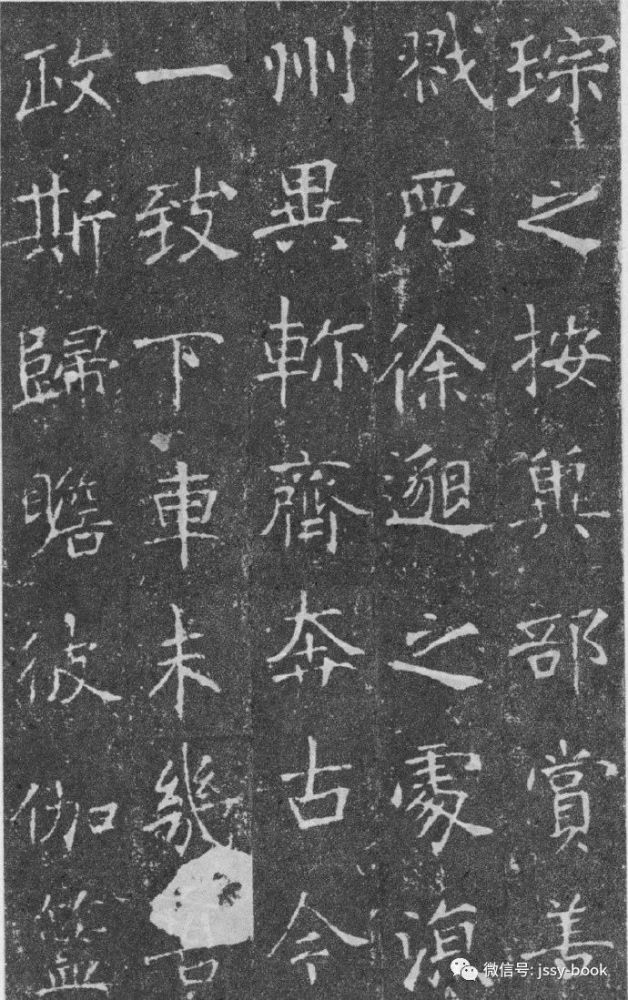 琮之按冀部賞善
戮惡徐邈之處涼
州異軫齊奔古今
一致下車未幾
政斯歸瞻彼伽藍
微信号: jssy-book